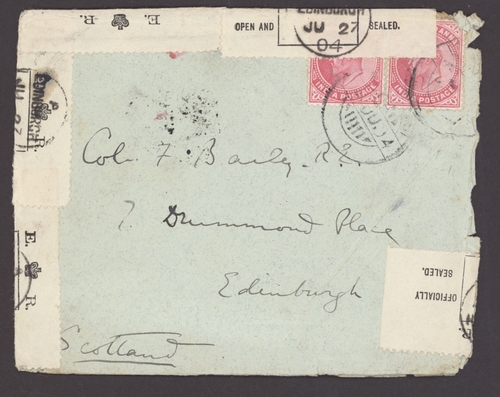 E. R.
OPEN AND SEALED.
EDINBURGH
JU 27
04
INDIA POSTAGE INDIA POSTAGE
E. R.
Col. F. Bailey. R.E.
7. Drummond Place
Edinburgh
Scotland
E. R.
OFFICIALLY
SEALED.